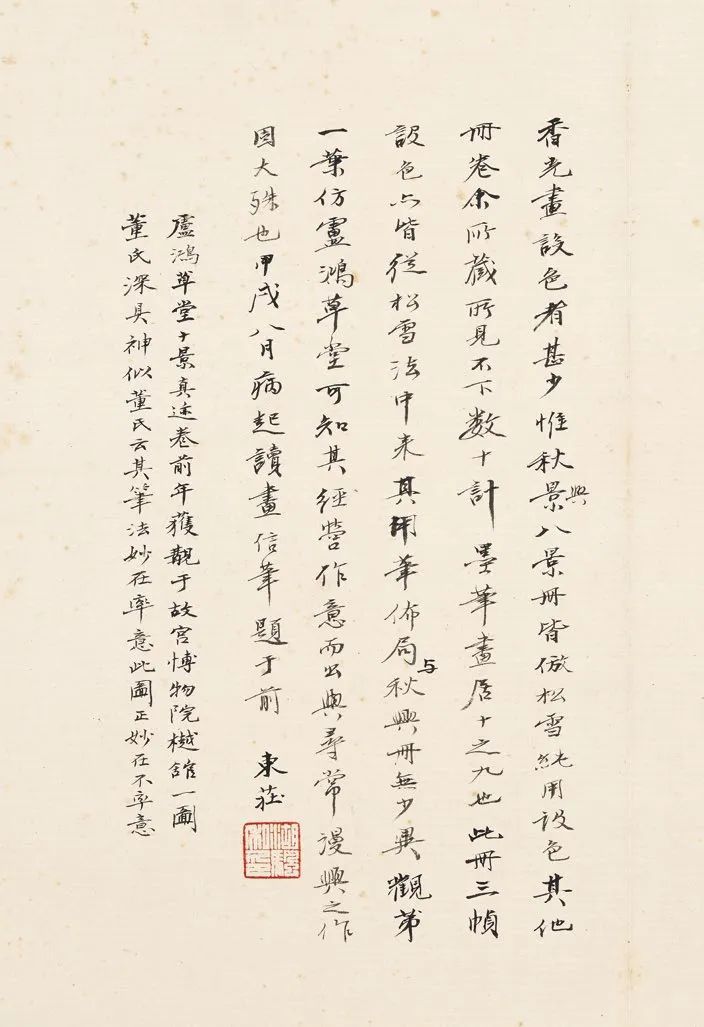 香光畫設色者甚少惟秋興八景冊皆倣松雪純用設色其他
冊卷余所藏所見不下数十計墨筆畫居十之九也此冊三幀
設色亦皆從松雪法中来其用筆佈局与秋興冊無少異觀第
一葉仿盧鴻草堂可知其經營作意而出與尋常漫興之作
固大殊也甲戌八月病起讀畫信筆題于前 東莊
盧鴻草堂十景真迹卷前年獲觀于故宮博物院樾館一圖
董氏深具神似董氏云其筆法妙在率意此圖正妙在不率意